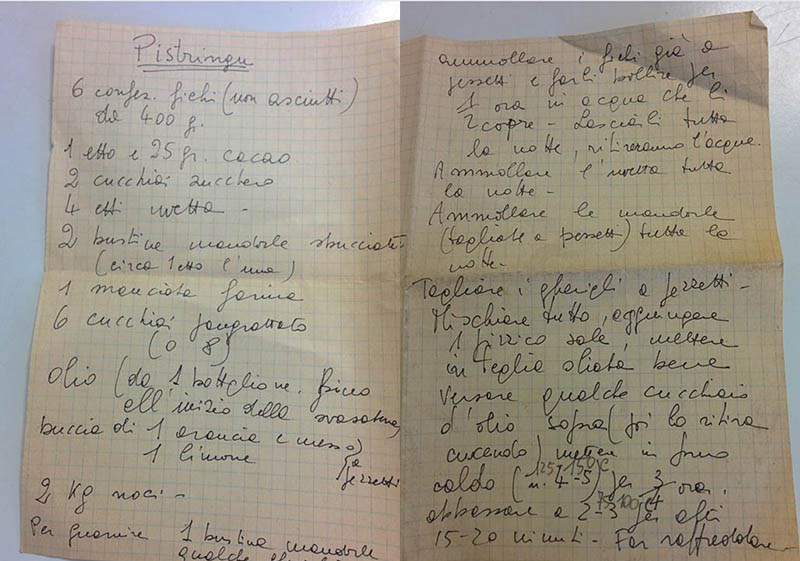 Pistringu
6 confez. fichi (non asciutti)
da 400 g.
1 etto e 25 gr. cacao
2 cucchiai zucchero
4 etti uvetta -
2 bustine mandorle sbucciate
(circa 1 etto l'una)
1 manciata farina
6 cucchiai pangrattato
(o 8)
olio (da 1 bottiglione. fino
all'inizio della svasatura)
buccia di 1 arancia e mezzo
1 limone
a pezzetti
2 Kg noci -
Per guarnire 1 bustina mandorle
qualche
ammollare i fichi già a
pezzetti e farli bollire per
1 ora in acqua che li
ricopre - Lasciarli tutta
la notte, ritireranno l'acqua.
Ammollare l'uvetta tutta
la notte -
Ammollare le mandorle
(tagliate a pezzetti) tutta la
notte -
Tagliare i gherigli a pezzetti -
Mischiare tutto, aggiungere
1 pizzico sale, mettere
in teglia oliata bene
versare qualche cucchiaio
d'olio sopra (poi lo ritira
cuocendo) mettere in forno
125-150°C
caldo (n. 4-5) per 3/4 ora,
75-100°C
abbassare a 2-3 per altri
15-20 minuti - Far raffreddare -